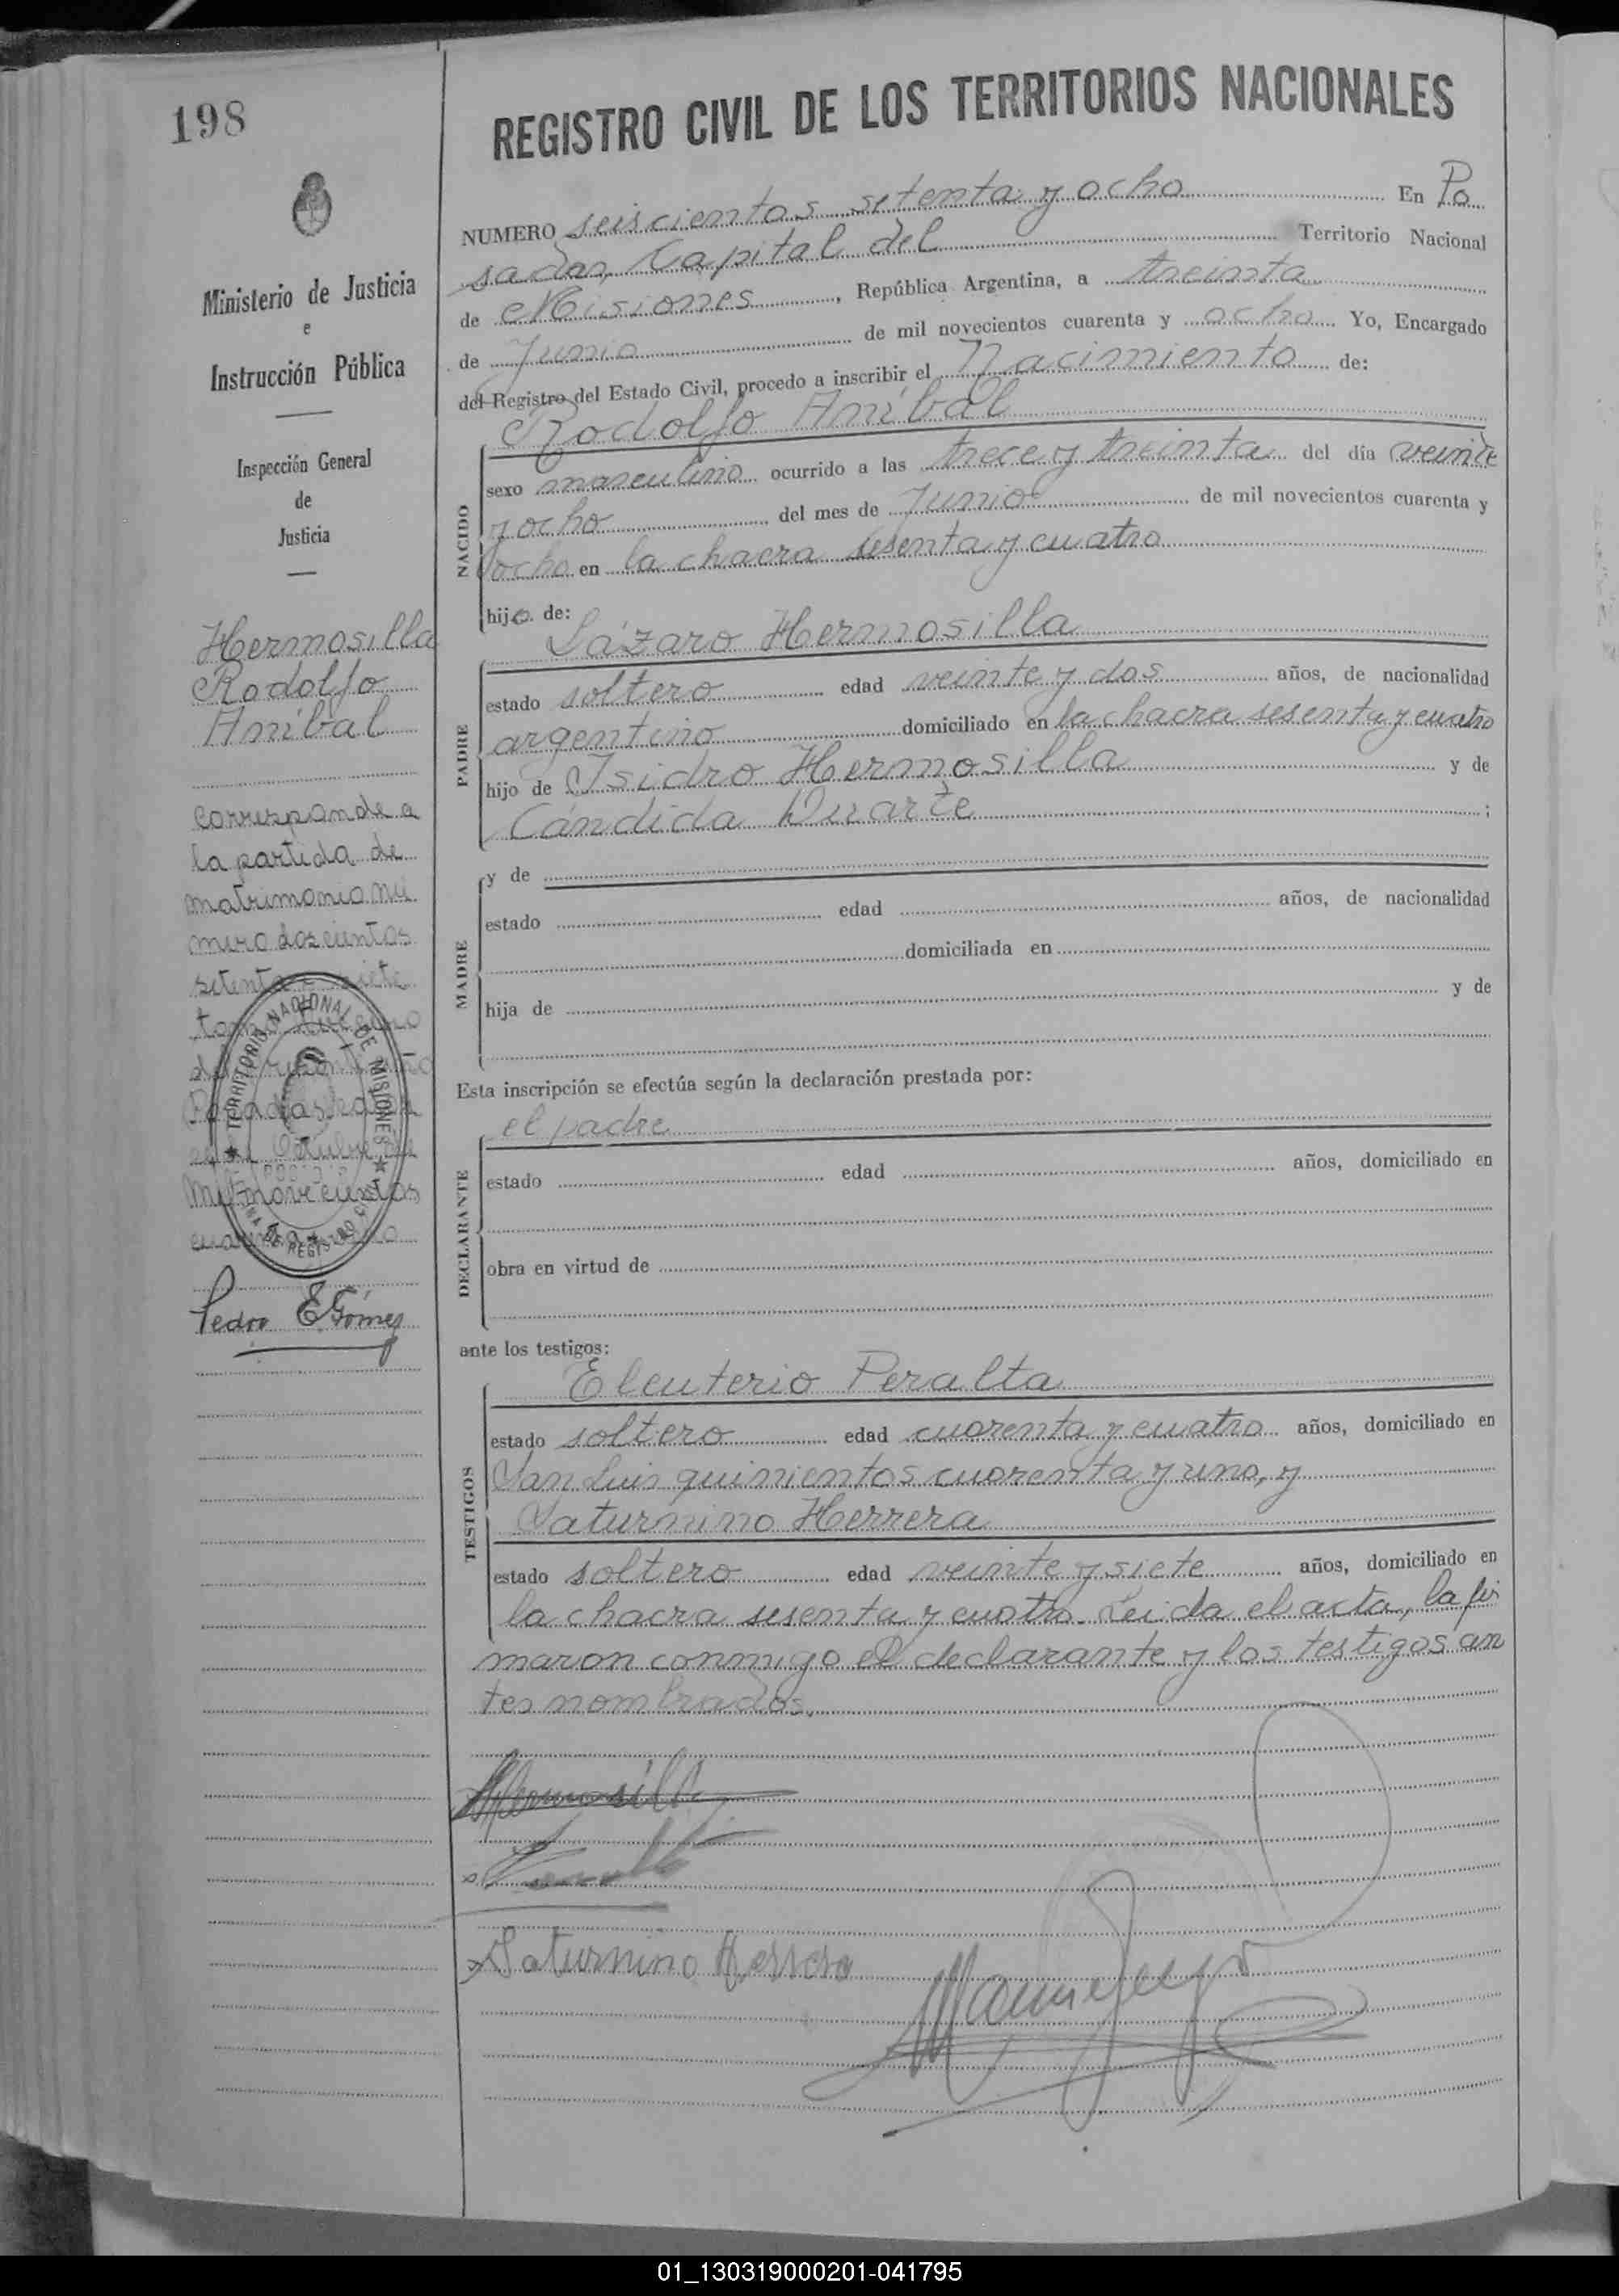 198
Ministerio de Justicia
e
Instrucción Pública
Inspección General
de
Justicia
Hermosilla
Rodolfo
Aníbal
Corresponde a
la partida de
matrimonio nú
mero doscientos
setenta y siete
tomo
Posadas
Octubre de
Mil novecientos
cuarenta y ocho
TERRITORIO NACIONAL DE MISIONES
DE REGISTRO
Pedro E Gómez
REGISTRO CIVIL DE LOS TERRITORIOS NACIONALES
NUMERO seiscientos setenta y ocho En Po
sadas, Capital del Territorio Nacional
de Misiones, República Argentina, a treinta
de Junio de mil novecientos cuarenta y ocho Yo, Encargado
del Registro del Estado Civil, procedo a inscribir el Nacimiento de:
Rodolfo Aníbal
NACIDO
sexo masculino ocurrido a las trece y treinta del día veinte
y ocho del mes de Junio de mil novecientos cuarenta y
ocho en la chacra sesenta y cuatro
hijo de:
Lázaro Hermosilla
PADRE
estado soltero edad veinte y dos años, de nacionalidad
argentino domiciliado en la chacra sesenta y cuatro
hijo de Isidro Hermosilla y de
Cándida Duarte ;
MADRE
y de
estado edad años, de nacionalidad
domiciliada en
hija de y de
Esta inscripción se efectúa según la declaración prestada por:
el padre
DECLARANTE
estado edad años, domiciliado en
obra en virtud de
ante los testigos:
Eleuterio Peralta
TESTIGOS
estado soltero edad cuarenta y cuatro años, domiciliado en
San Luis quinientos cuarenta y uno, y
Saturnino Herrera
estado soltero edad veinte y siete años, domiciliado en
la chacra sesenta y cuatro. Leida el acta, la fir
maron conmigo el declarante y los testigos an
tes nombrados.
Hermosilla
Saturnino Herrera
01_130319000201-041795